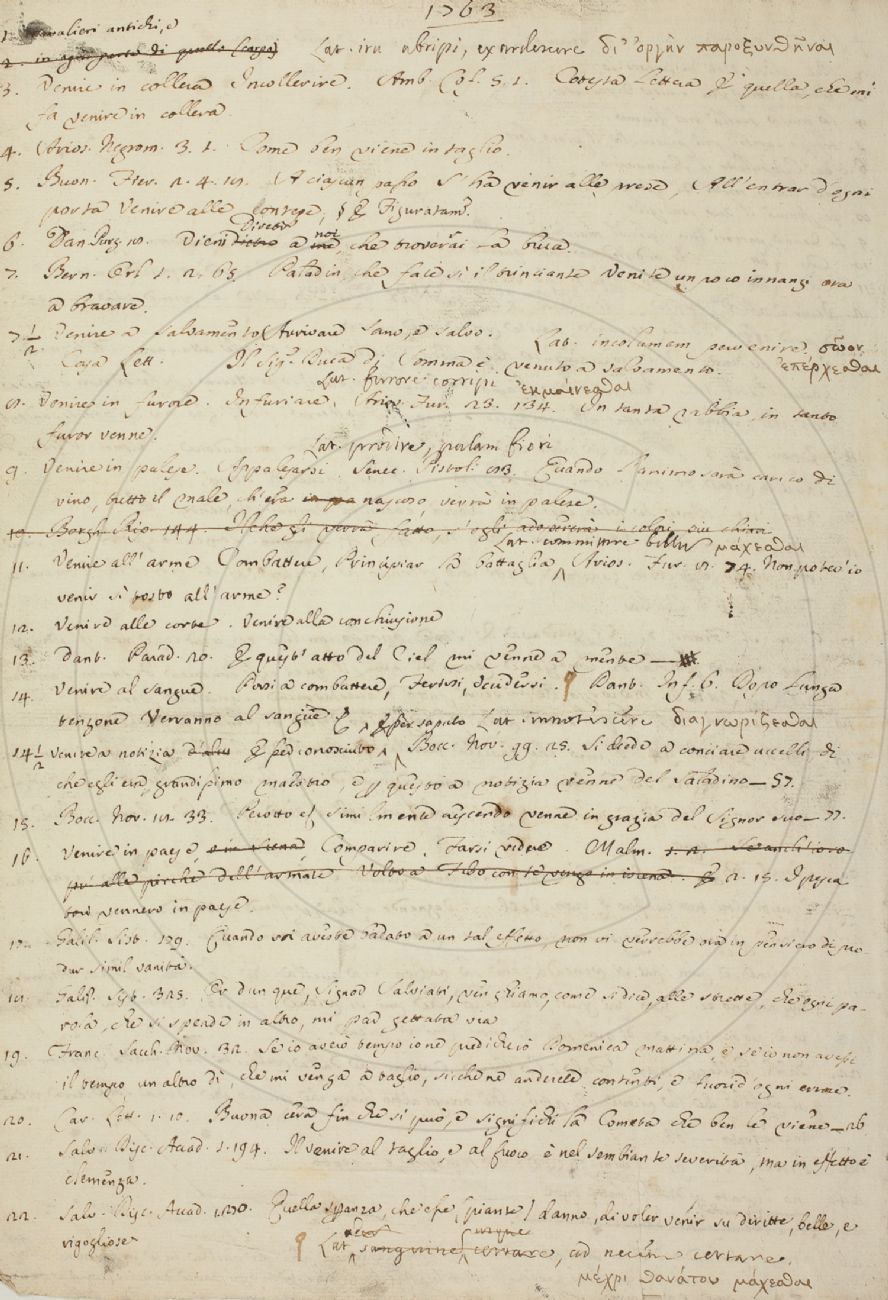 1763
1. cavalieri antichi, e
2. in ogni parte di quella Lat. ira abripi, excandescere δι' ὀργὴν παροξυνθῆναι
3. Venire in collera Incollerire. Amb. Cof. 5. 1. Cotesta Lettera è quella, che mi
fa venire in collera
4. Arios. Negrom. 3. 1. Come ben viene in taglio.
5. Buon. Fier. 2. 4. A ciascun passo s'ha venir alle prese, All'entrar d'ogni
porta Venire alle contese, § E Figuratam.
6. Dan. Purg. Dirietro Vieni dietro a noi me, che troverai la buca.
7. Bern. Orl. 1. 2. 65. Paladin, che face si il trinciante Venite un poco innanzi ora
a bravare.
7½ Venire a salvamento Arrivare sano, e salvo. Lat. incolumem pervenire σῶον
Casa Lett. Il Sig. Duca di Somma è venuto a salvamento. ἐπέρχεσθαι
Lat. furore corripi ἐκμαίνεσθαι
8. Venire in furore. Infuriare. Arios. Fur. 23. 134. In tanta rabbia, in tanto
furor venne.
Lat. prodire, palam fieri
9. Venire in palese. Appalesarsi. Senec. Pistol. 83. Quando l'animo sarà carico di
vino, tutto il male, ch'era nascoso, verrà in palese.
10. Borgh. 144. fatto,
Lat. committere bellum μάχεσθαι
11. Venire all'arme Combattere, Principiar la battaglia ^ Arios. Fur. 74. Non potea io
venir sì tosto all'arme?
12. Venire alle corte. Venire alla conchiusione
13. Dant. Parad. 20. E quest'atto del Ciel mi venne a mente —
14. Venire al sangue. Porsi a combattere, Ferirsi, Uccidersi. Dant. Inf. 6. Dopo lunga
tenzone Verranno al sangue E ^ Esser saputo Lat. innotescere διαγνωρίζεσθαι
14½ Venire a notizia Esser conosciuto ^ Bocc. Nov. 99. 25. Si diede a conciare uccelli di
che egli era grandissimo maestro, e per questo a notizia venne del Saladino — 57.
15. Bocc. Nov. 33. Perotto e similmente crescendo venne in grazia del Signor suo — 77.
16. Venire in paese, e in scena, Comparire. Farsi vedere. Malm. 1. 2. Se anch'io
più alle pirche dell'armate Volto a Febo con te vengo in iscena. E 2. 15. I pesca
tori vennero in paese.
17. Galil. Sist. 179. Quando voi aveste badato a un tal effetto, non vi verrebbe ora in pensiero di pro-
dur simil vanità.
18. Galil. Sist. 325. Or dunque, Signor Salviati, venghiamo, come si dice, alle strette, che ogni pa-
rola, che si spende in altro, mi par gettata via
19. Franc. Sacch. Nov. 32. Se io avrò tempo io ne predicherò Domenica mattina, e se io non avessi
il tempo, un altro dì, che mi venga a taglio, sicché ne anderete contenti, e fuori d'ogni errore.
20. Car. Lett. 1. 10. Buona cera fin che si può, e significhi la Cometa che ben le viene — 26
21. Salv. Disc. Accad. 1. 194. Il venire al taglio, e al fuoco è nel sembiante severità, ma in effetto è
clemenza.
22. Salv. Disc. Accad. Quella speranza, che esse (piante) danno, di voler venir su diritte, belle, e
rigogliose
Lat. ^ sanguine certare, ad necem certare.
μέχρι θανάτου μάχεσθαι